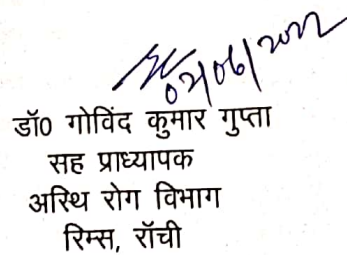 02/06/2022
डॉ0 गोविंद कुमार गुप्ता
सह प्राध्यापक
अस्थि रोग विभाग
रिम्स, राॅची